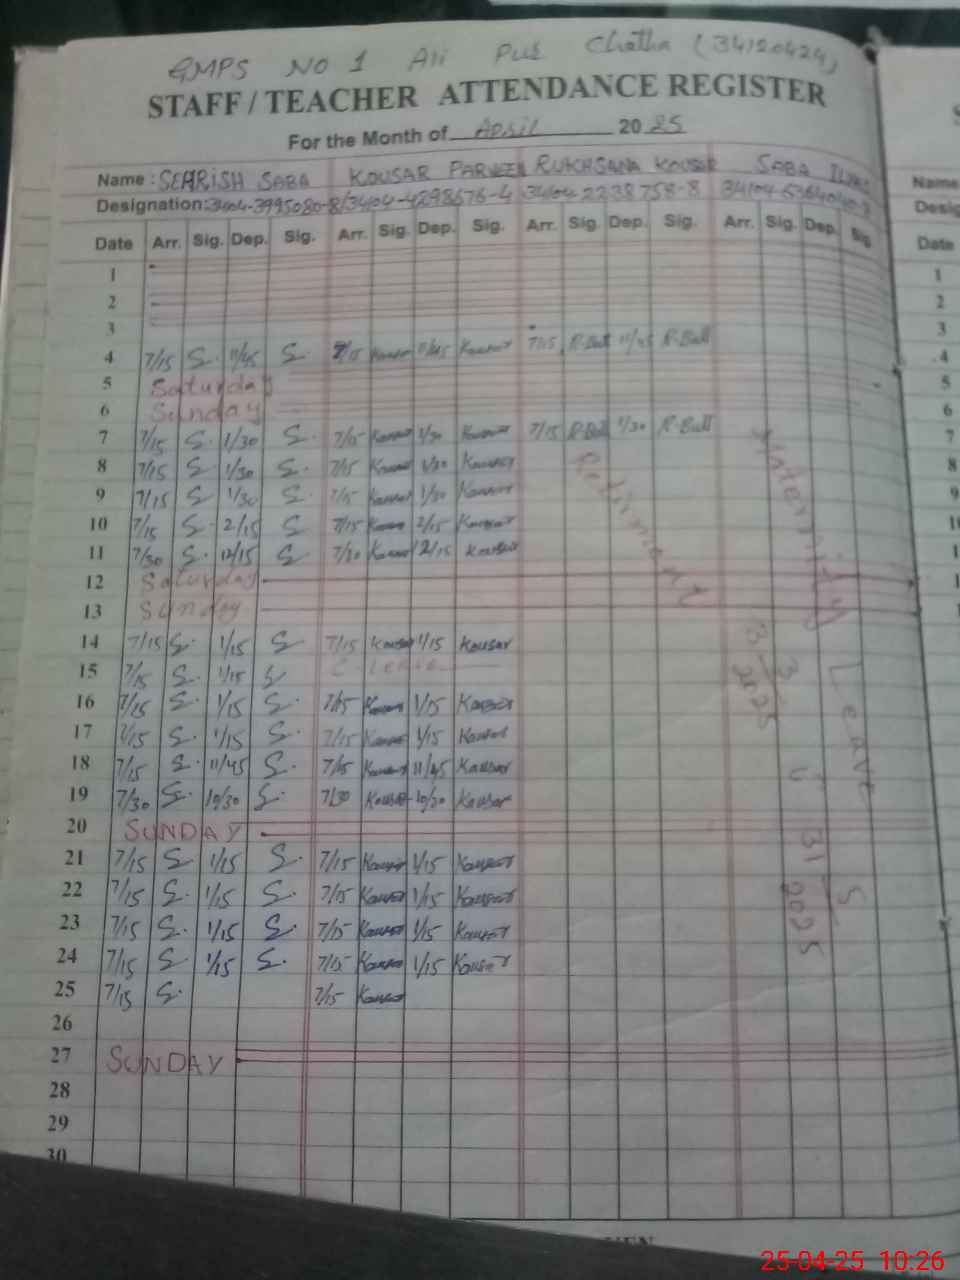 GMPS NO 1 Ali Pur Chatha (34120424)
STAFF / TEACHER ATTENDANCE REGISTER
For the Month of April 2025
Name : SEHRISH SABA KOUSAR PARVEEN RUKHSANA KAUSAR SABA
Designation: 3404-3995080-8 3404-4298676-4 34104-2238758-8
Date Arr. Sig. Dep. Sig. Arr. Sig. Dep. Sig. Arr. Sig. Dep. Sig. Arr. Sig. Dep. Sig
1
2
3
4 7/15 S. 11/45 S. 7/15 Kousar 11/45 Kousar 7/15 R-Bull 11/45 R-Bull
5 Saturday
6 Sunday
7 7/15 S. 1/30 S. 7/15 Kousar 1/30 Kousar 7/15 R-Bull 1/30 R-Bull
8 7/15 S 1/30 S. 7/15 Kousar 1/30 Kousar
9 7/15 S 1/30 S. 7/15 Kousar 1/30 Kousar
10 7/15 S. 2/15 S 7/15 Kousar 2/15 Kousar
11 7/30 S. 12/15 S. 7/30 Kousar 12/15 Kousar
12 Saturday
13 Sunday
14 7/15 S. 1/15 S 7/15 Kousar 1/15 Kousar
15 7/15 S. 1/15 S C-Leave
16 7/15 S. 1/15 S. 7/15 Kousar 1/15 Kousar
17 7/15 S. 1/15 S. 7/15 Kousar 1/15 Kousar
18 7/15 S. 11/45 S. 7/15 Kousar 11/45 Kousar
19 7/30 S. 10/30 S. 7/30 Kousar 10/30 Kousar
20 SUNDAY
21 7/15 S 1/15 S. 7/15 Kousar 1/15 Kousar
22 7/15 S. 1/15 S. 7/15 Kousar 1/15 Kousar
23 7/15 S. 1/15 S. 7/15 Kousar 1/15 Kousar
24 7/15 S 1/15 S. 7/15 Kousar 1/15 Kousar
25 7/15 S. 7/15 Kousar
26
27 SUNDAY
28
29
30
Retirment
Maternity Leave
3
3
2025
31
5
2025
Name
Desig
Date
1
2
3
4
5
6
7
8
25-04-25 10:26